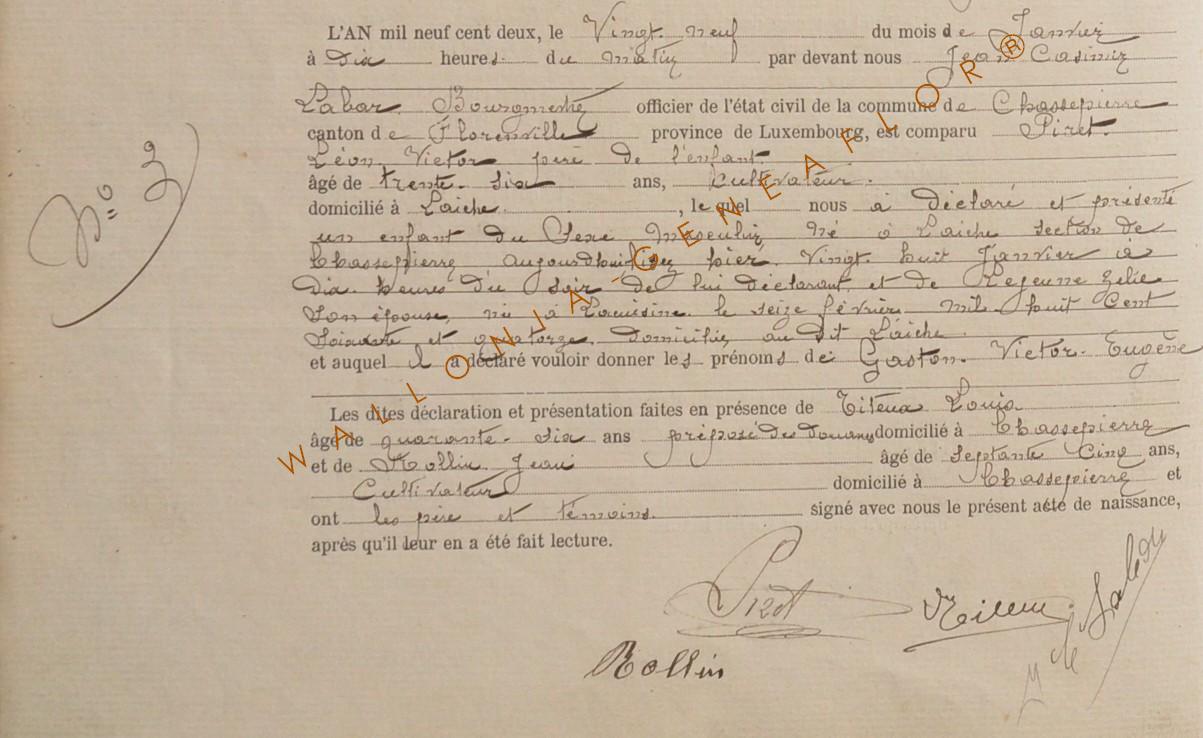 L'AN mil neuf cent deux, le Vingt neuf du mois de Janvier
à dix heures du matin par devant nous Jean Casimir
Labar Bourgmestre officier de l'état civil de la commune de Chassepierre
canton de Florenville province de Luxembourg, est comparu Piret
Léon Victor père de l'enfant
âgé de trente-six ans, Cultivateur.
domicilié à Laiche, le quel nous a déclaré et présenté
un enfant du sexe masculin né à Laiche section de
Chassepierre hier Vingt huit Janvier à
dix heures du soir de lui déclarant et de Lejeune Zelie
Son épouse, née à Lacuisine le seize février mil huit Cent
Soixante et quatorze domiciliés au dit Laiche
et auquel il a déclaré vouloir donner les prénoms de Gaston Victor Eugène
Les dites déclaration et présentation faites en présence de Titeux Louis
âgé de quarante-six ans préposé des douanes domicilié à Chassepierre
et de Rollin Jean âgé de Septante Cinq ans,
Cultivateur domicilié à Chassepierre et
ont les père et témoins signé avec nous le présent acte de naissance,
après qu'il leur en a été fait lecture.
N° 3
Piret Titeux
Rollin
WALLONIA-GENEAFLOR®